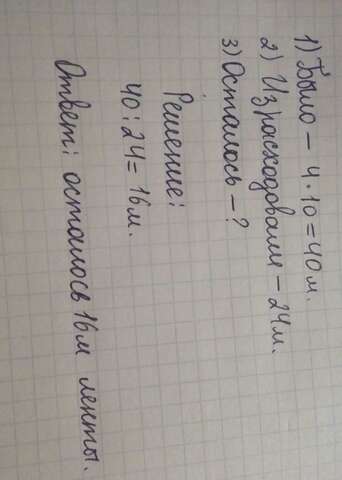 1) Было – 4·10=40м.
2) Израсходовали – 24м.
3) Осталось – ?
Решение:
40:24=16м.
Ответ: осталось 16м ленты.